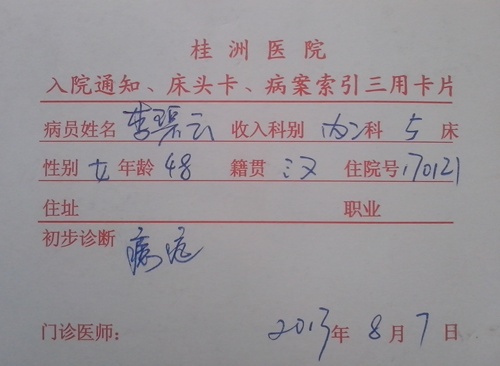 桂洲医院
入院通知、床头卡、病案索引三用卡片
病员姓名 李碧云 收入科别 内二科 5 床
性别 女 年龄 48 籍贯 汉 住院号 170121
住址 职业
初步诊断 癫痫
门诊医师: 2013年 8月 7日